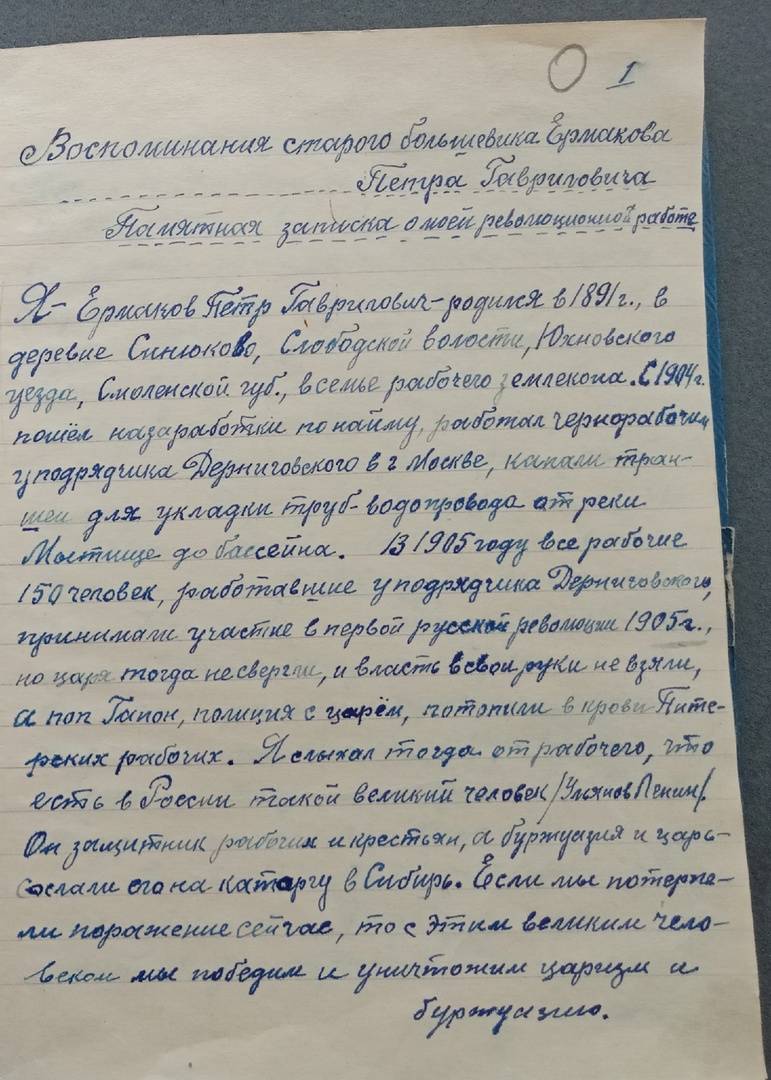 1
Воспоминания старого большевика Ермакова
Петра Гавриловича
Памятная записка о моей революционной работе
Я - Ермаков Пётр Гаврилович - родился в 1891 г., в
деревне Синюково, Слободской волости, Юхновского
уезда, Смоленской губ., в семье рабочего землекопа. С 1904 г.
пошёл на заработки по найму, работал чернорабочим
у подрядчика Дерниговского в г Москве, капали тран-
шеи для укладки труб-водопровода от реки
Мытище до бассейна. В 1905 году все рабочие
150 человек, работавшие у подрядчика Дерниговского,
принимали участие в первой русской революции 1905 г.,
но царя тогда не свергли, и власть в свои руки не взяли,
а поп Гапон, полиция с царём, потопили в крови Пите-
рских рабочих. Я слыхал тогда от рабочего, что
есть в России такой великий человек /Ульянов Ленин/.
Он защитник рабочих и крестьян, а буржуазия и царь-
сослали его на каторгу в Сибирь. Если мы потерпе-
ли поражение сейчас, то с этим великим чело-
веком мы победим и уничтожим царизм и
буржуазию.